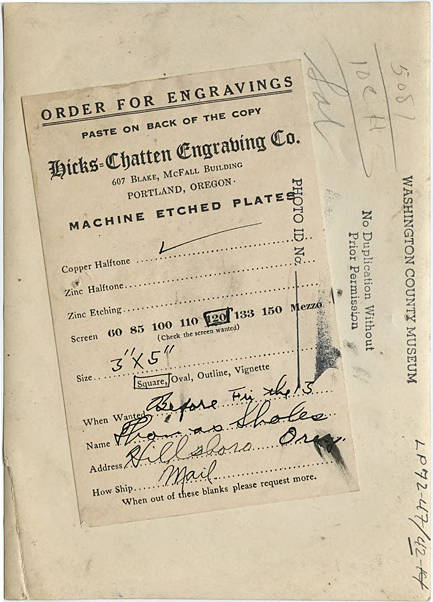 ORDER FOR ENGRAVINGS
PASTE ON BACK OF THE COPY
Hicks-Chatten Engraving Co.
607 BLAKE, MCFALL BUILDING
PORTLAND, OREGON.
MACHINE ETCHED PLATES
Copper Halftone
Zinc Halftone
Zinc Etching
Screen 60 85 100 110 120 133 150 Mezzo
(Check the screen wanted)
Size 3"X5"
Square, Oval, Outline, Vignette
When Wanted Before Fri the 13
Name Thomas Sholes
Address Hillsboro Oreg
How Ship Mail
When out of these blanks please request more.
PHOTO ID No.
5081
WASHINGTON COUNTY MUSEUM
No Duplication Without
Prior Permission